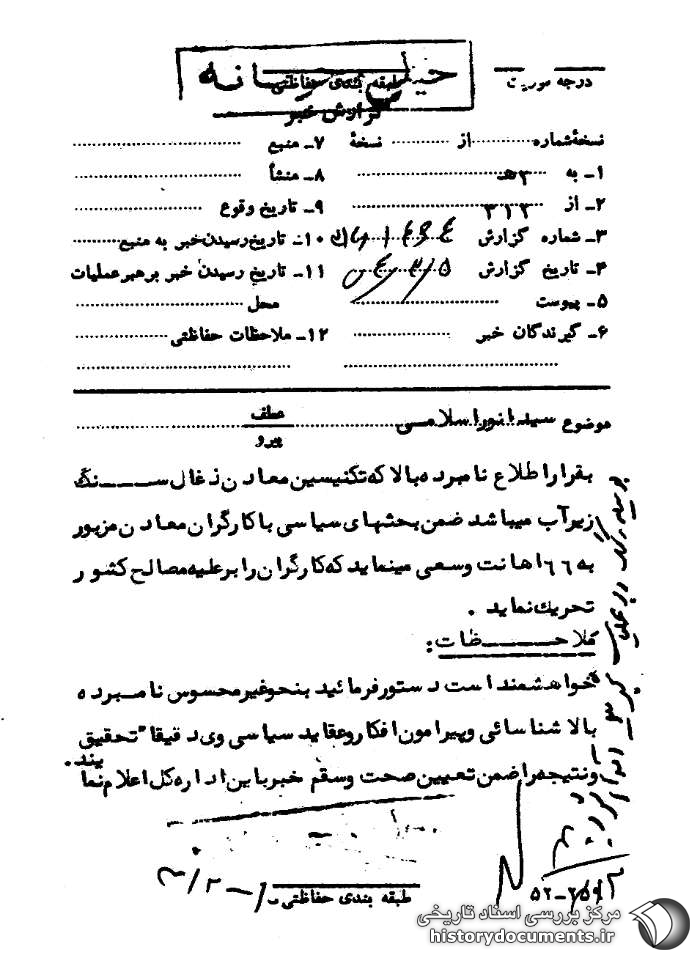 خیلی محرمانه
طبقه بندی حفاظتی
درجه فوریت
گزارش خبر
نسخهٔ شماره از نسخهٔ
۷ـ منبع
۱ـ به ۳هـ
۸ـ منشأ
۲ـ از ۳۱۲
۹ـ تاریخ وقوع
۳ـ شماره گزارش
۱۰ـ تاریخ رسیدن خبر به منبع
۴ـ تاریخ گزارش
۱۱ـ تاریخ رسیدن خبر برهبر عملیات
۵ـ پیوست
محل
۶ـ گیرندگان خبر
۱۲ـ ملاحظات حفاظتی
موضوع سید انور اسلامی
عطف
پیرو
بقرار اطلاع نامبرده بالا که تکنیسین معادن ذغال سنگ
زیرآب میباشد ضمن بحثهای سیاسی با کارگران معادن مزبور
به ۶۶ اهانت وسعی مینماید که کارگران را بر علیه مصالح کشور
تحریک نماید .
ملاحظات :
خواهشمند است دستور فرمائید بنحو غیر محسوس نامبرده
بالا شناسائی و پیرامون افکار و عقاید سیاسی وی دقیقا" تحقیق
ونتیجه را ضمن تعیین صحت وسقم خبر باین اداره کل اعلام نمایند.
طبقه بندی حفاظتی
مرکز بررسی اسناد تاریخی
historydocuments.ir